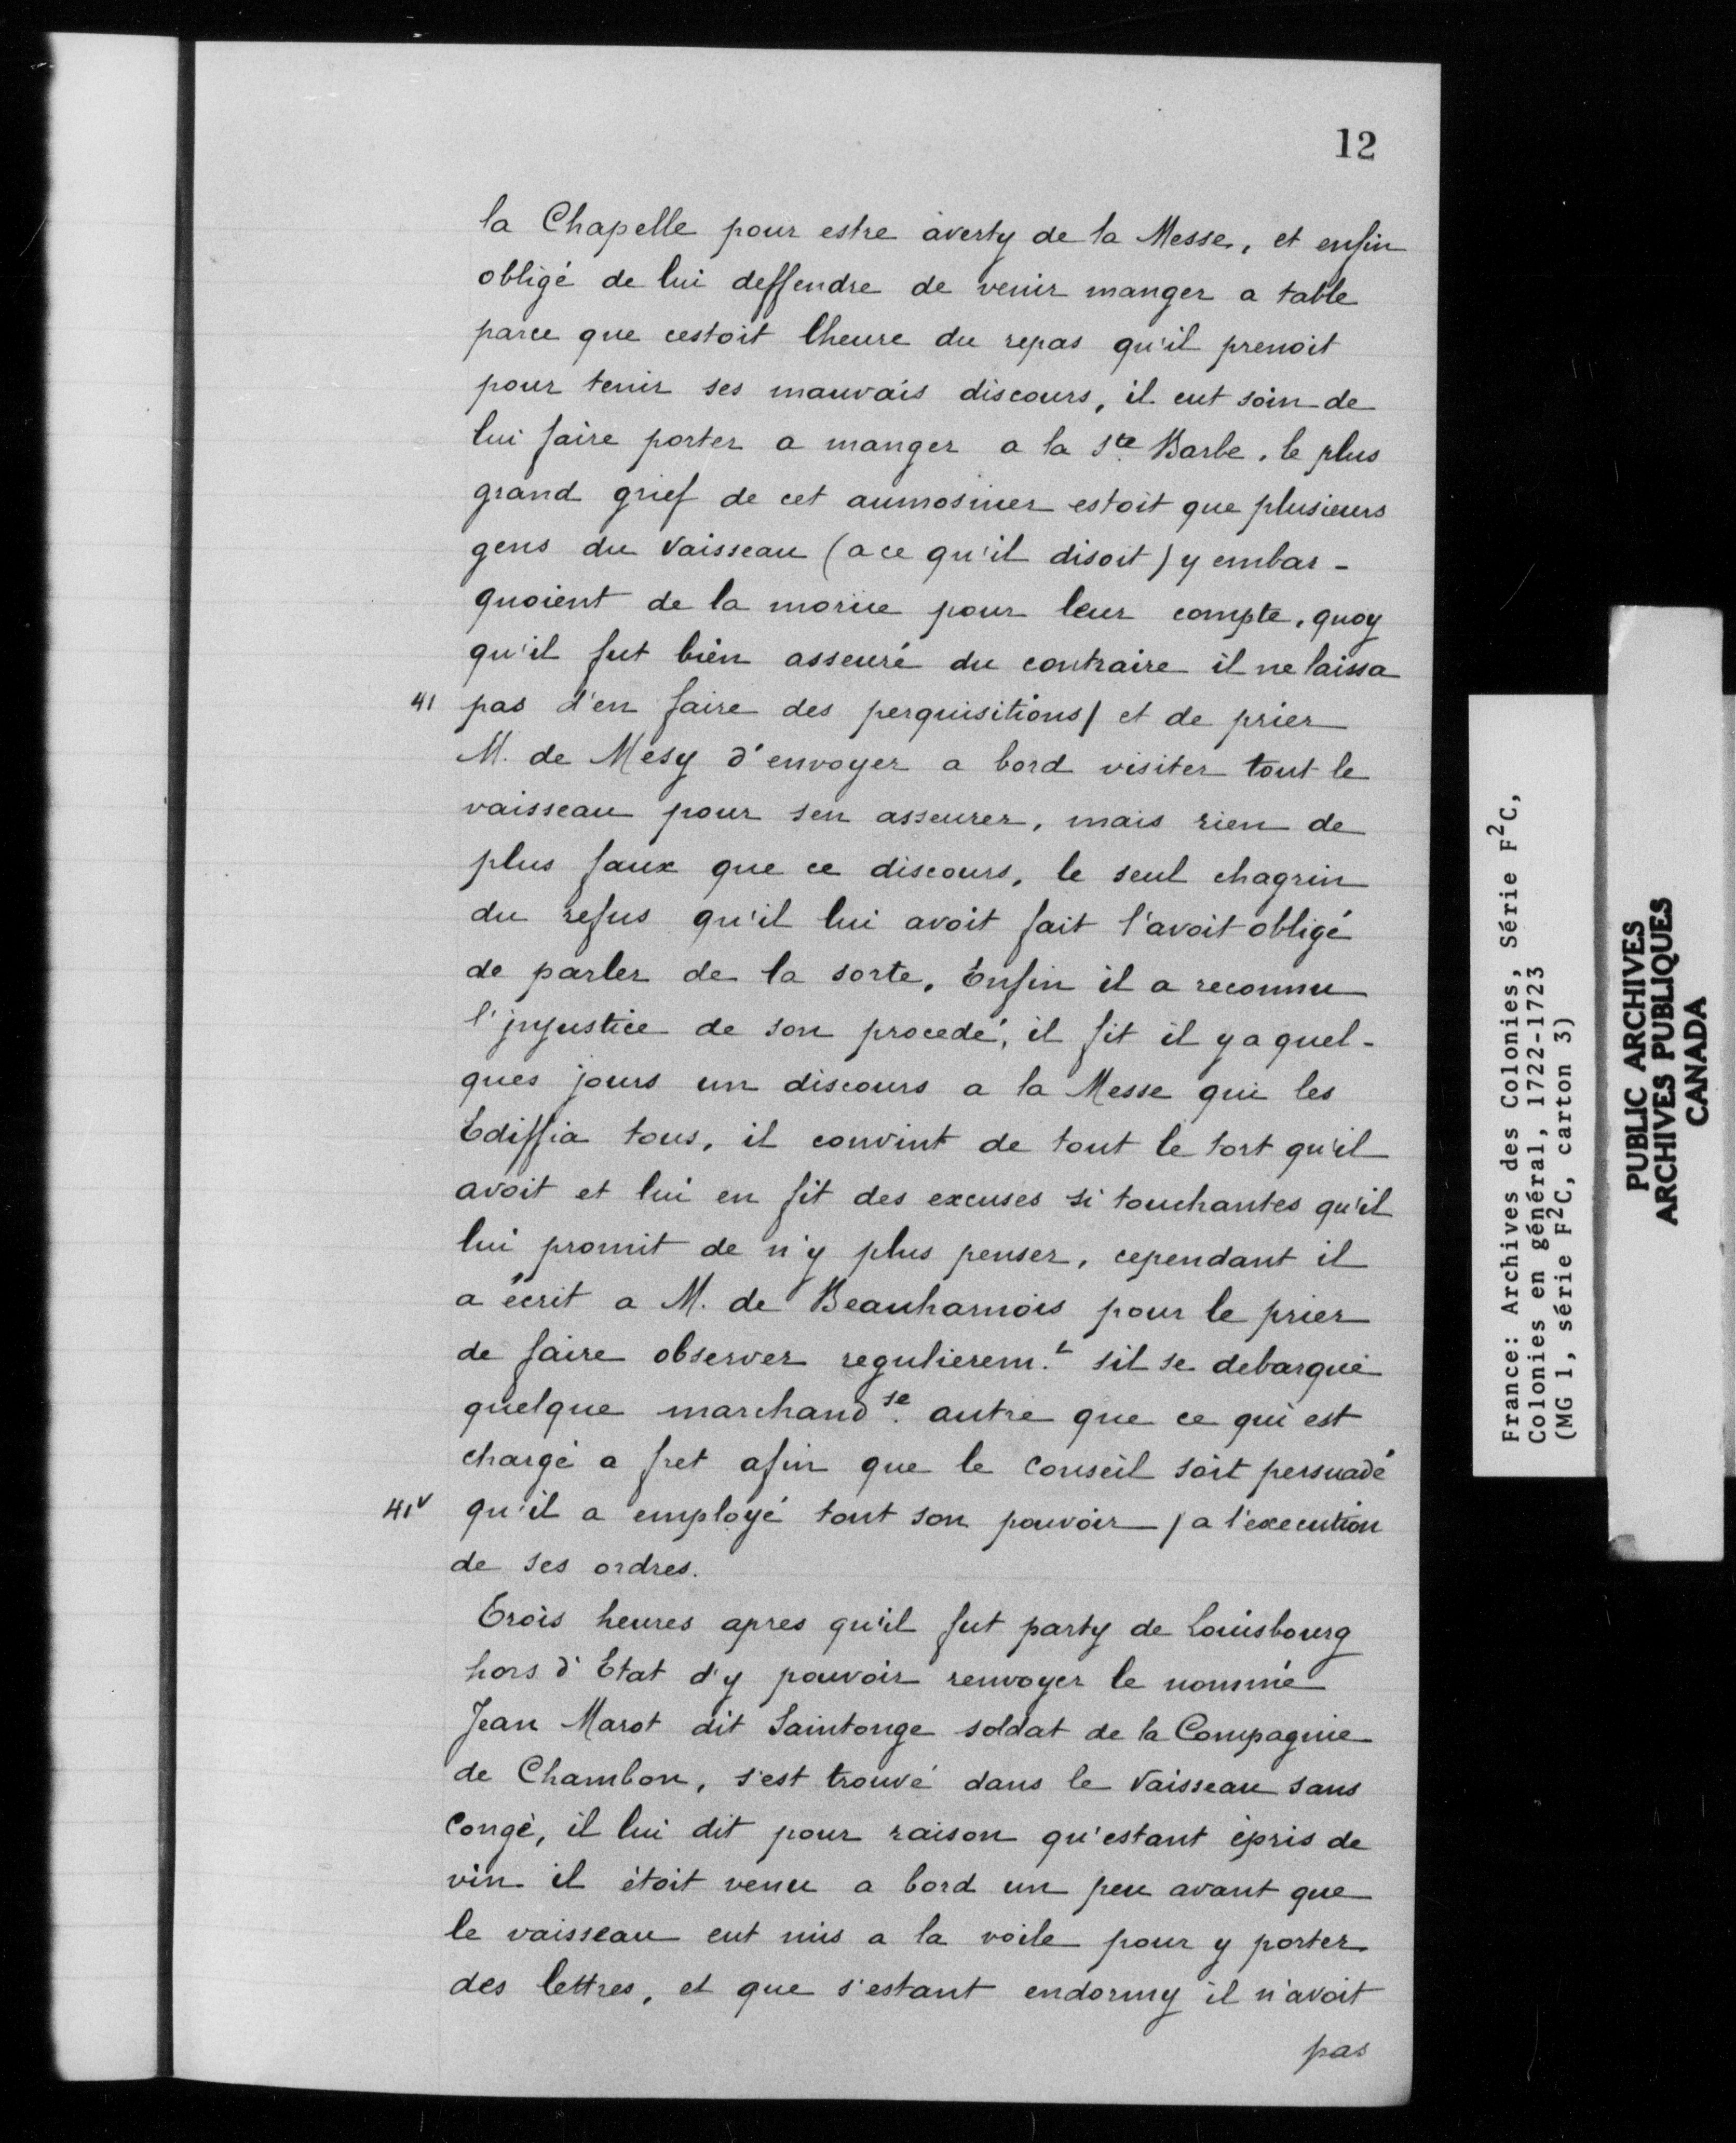 12
la Chapelle pour estre averty de la Messe, et enfin
obligé de lui deffendre de venir manger a table
parce que cestoit lheure du repas qu'il prenoit
pour tenir ses mauvais discours, il eut soin de
lui faire porter a manger a la Ste Barbe, le plus
grand grief de cet aumosnier estoit que plusieurs
gens du Vaisseau (a ce qu'il disoit) y embar-
quoient de la morüe pour leur compte, quoy
qu'il fut bien asseuré du contraire il ne laissa
41 pas d'en faire des perquisitions / et de prier
M. de Mesy d'envoyer a bord visiter tout le
vaisseau pour sen asseurer, mais rien de
plus faux que ce discours, le seul chagrin
du refus qu'il lui avoit fait l'avoit obligé
de parler de la sorte, Enfin il a reconnu
l'injustice de son procedé, il fit il y a quel-
ques jours un discours a la Messe qui les
Ediffia tous, il convint de tout le tort qu'il
avoit et lui en fit des excuses si touchantes qu'il
lui promit de n'y plus penser, cependant il
a écrit a M. de Beauharnois pour le prier
de faire observer regulierem.t sil se debarque
quelque marchandse. autre que ce qui est
chargé a fret afin que le Conseil soit persuadé
41v qu'il a employé tout son pouvoir / a l'execution
de ses ordres.
Trois heures apres qu'il fut party de Louisbourg
hors d'Etat d'y pouvoir renvoyer le nommé
Jean Marot dit Saintonge soldat de la Compagnie
de Chambon, s'est trouvé dans le Vaisseau sans
Congé, il lui dit pour raison qu'estant épris de
vin il étoit venu a bord un peu avant que
le vaisseau eut mis a la voile pour y porter
des lettres, et que s'estant endormy il n'avoit
pas
France: Archives des Colonies, Série F2C,
Colonies en général, 1722-1723
(MG 1, série F2C, carton 3)
PUBLIC ARCHIVES
ARCHIVES PUBLIQUES
CANADA